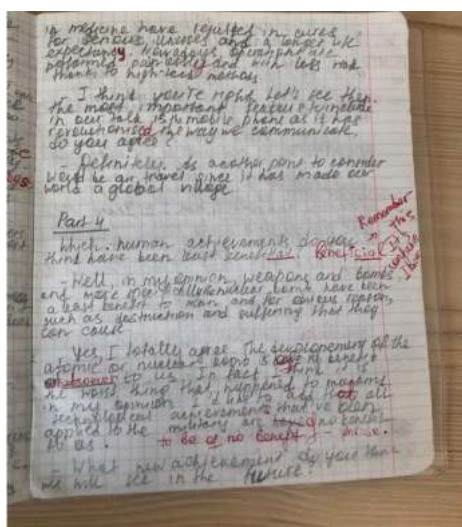 in medicine have resulted in cures
for serious illnesses and a longer life
expectancy. Nowadays, operations are
performed painlessly and with less risk
thanks to high-tech methods
- I think you're right. Let's see then
the most important feature
in our talk is the mobile phone as it has
revolutionised the way we communicate.
Do you agree?
- Definitely. As another point to consider
would be air travel since it has made our
world a global village
Part 4
Which human achievements do you
think have been least beneficial? Beneficial
Remember
this
- Well, in my opinion, weapons and bombs
and more specifically nuclear bomb have been
a least benefit to man and for obvious reasons,
such as destruction and suffering that they
can cause
- Yes, I totally agree. The of the
atomic or nuclear bomb is no benefit
whatsoever to us. In fact I think it is
the worst thing that happened to
in my opinion I'd like to add that all
technological achievements that've been
applied to the military are no benefit
to us. to be of no benefit
- What new achievements do you think
we will see in the future?